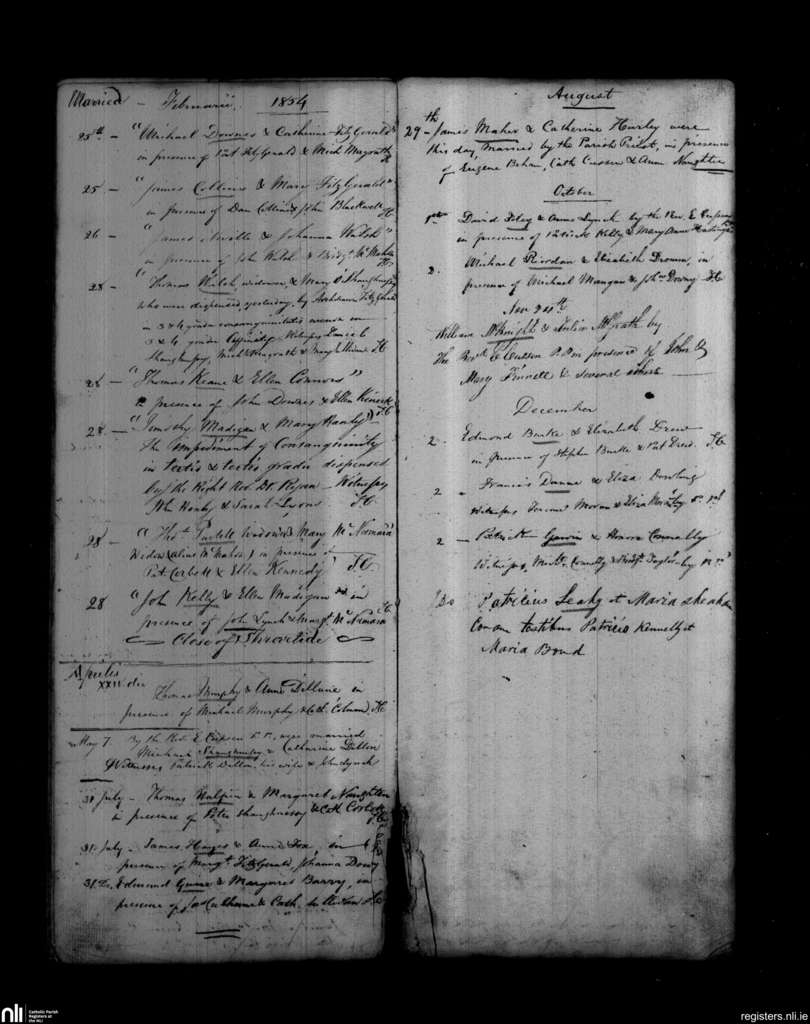 Married - Februarii, 1854
25th - "Michael Downes & Catherine FitzGerald"
in presence of Pat FitzGerald & Mich Magrath
25 - "James Collins & Mary FitzGerald"
in presence of Dan Collins & John Blackwell
26 - "James Neville & Johanna Walsh"
in presence of John Walsh & Bridgt McMahon
28 - "Thomas Walsh, widower, & Mary O'Shaughnessy
who were dispensed, yesterday, by Archdeacon Fitzgerald
in 3 & 4 gradu consanguinitatis
3 & 4 gradu Affinitatis Witnesses Daniel
Shaughnessy, Mich Magrath & Mary
28 - "Thomas Keane & Ellen Connors"
presence of John Downes & Ellen
28 - "Timothy Madigan & Mary Hanly"
the impediment of Consanguinity
in tertio & tertio gradu dispensed
by the Right Rev Dr Ryan - Witnesses
Hanly & Sarah Lyons
28 - "Thos Purtell widower & Mary McNamara
Widow (alias McMahon) in presence of
Pat Corbett & Ellen Kennedy
28 "John Kelly & Ellen Madigan in
presence of John Lynch & Margt McNamara
Close of Shrovetide
Aprilis
XXII die
Thomas Murphy & Anne Dillane in
presence of Michael Murphy & Cath Colman
May 7. By the Rev. E were married
Michael Shaughnessy & Catherine Dillon
Witnesses Patrick Dillon, his wife & John Lynch
31 July - Thomas Halpin & Margaret Naughton
in presence of Peter Shaughnessy & Cath Corbett
31. July - James Hayes & Anne Fox, in
presence of Margt FitzGerald, Johanna Downy
31. Do. Edmund Quine & Margaret Barry, in
presence of & Cath. Sullivan
August
29th - James Maher & Catherine Hurley were
this day, married by the Parish Priest, in presence
of Eugene Behan, Cath Cussen & Anne Naughton
October
David Foley & Anne Lynch by the Rev. E
in presence of Patrick Kelly & Mary Anne
2. Michael Riordan & Elizabeth Dromm, in
presence of Michael Mangan & John Downy
Nov 24th
William McKnight & Julia McGrath by
the Revd in presence of John &
Mary Finnell & several others
December
2. Edmond Burke & Elizabeth Drew
in presence of Stephen Burke & Pat Drew.
2 " Francis Danne & Eliza Dowling
Witnesses Moran & Eliza
2 - Patrick & Honora Connelly
Witnesses, Connelly & Bridgt Taylor by
Do Patricius Leahy et Maria Sheahan
Coram testibus Patricio Kennelly et
Maria Bond
nli Catholic Parish
Registers at
the NLI
registers.nli.ie